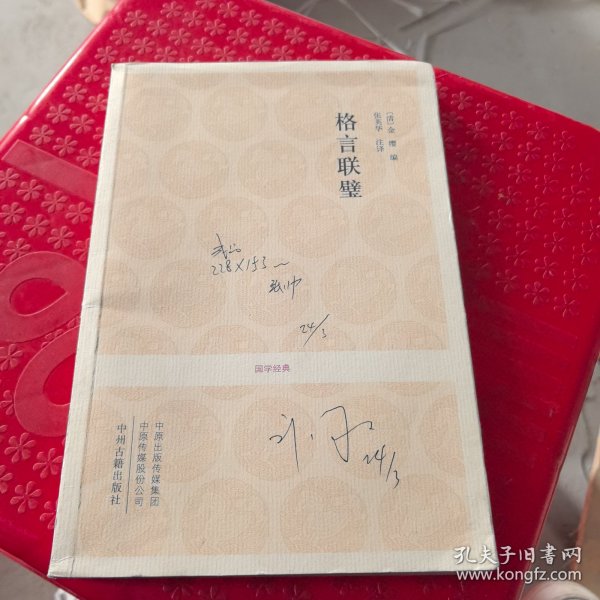 格言联璧
〔清〕金缨 编
张英华 注译
228×153
24/3
国学经典
24/3
中原出版传媒集团
中原传媒股份公司
中州古籍出版社
孔夫子旧书网
www.kongfz.com